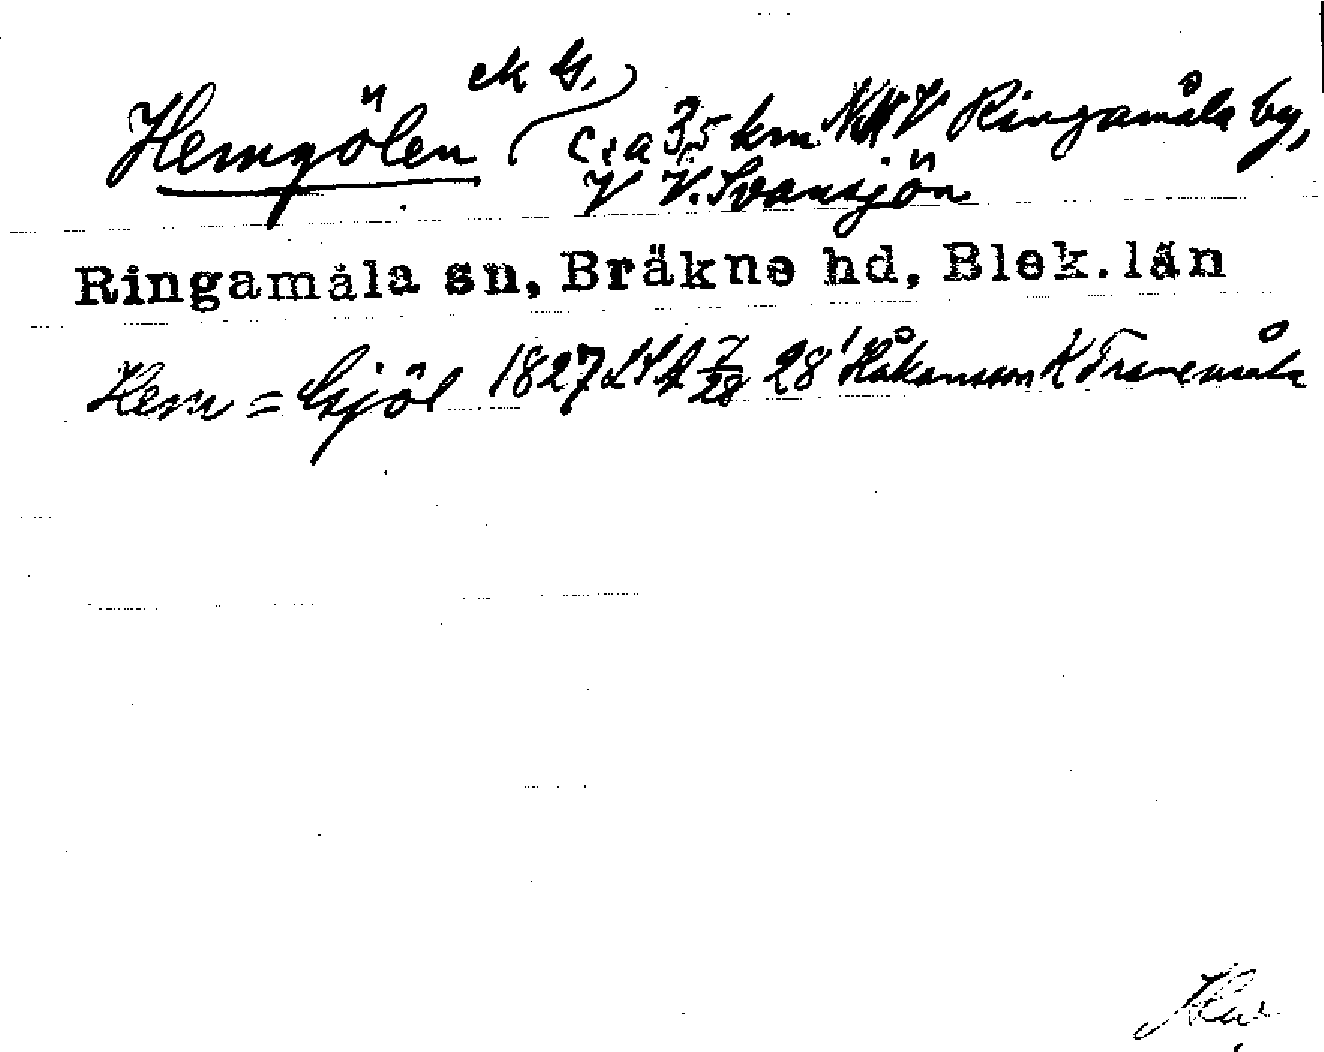 ek G.
Hemgölen c:a 3,5 km NNV Ringamåla by,
V V. Svansjön
Ringamåla sn, Bräkne hd, Blek. län
Hem = Gjöl 1827 LSA 7/28 28' Håkanson K Tranemåla